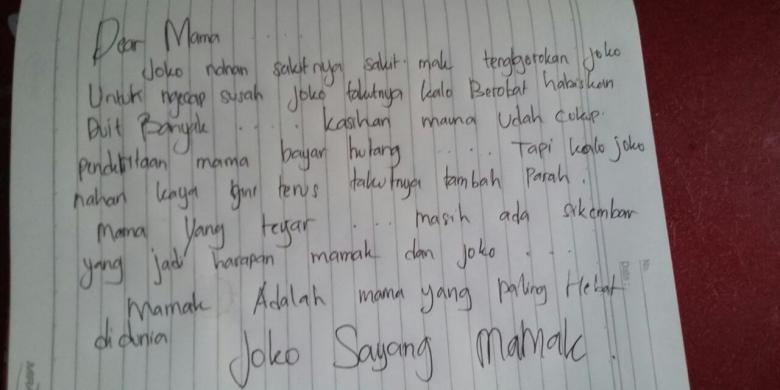 Dear Mama ....
Joko nahan sakitnya sakit mak tenggorokan Joko
Untuk ngecap susah Joko takutnya kalo Berobat habiskan
Duit Banyak .... kasihan mama Udah cukup
penderitaan mama bayar hutang .... Tapi kalo joko
nahan kaya gini terus takutnya tambah Parah.
mama Yang tegar ... masih ada sikembar
yang jadi harapan mamak dan joko ...
Mamak Adalah mama yang paling Hebat
di dunia
Joko Sayang Mamak.
No.
Date: